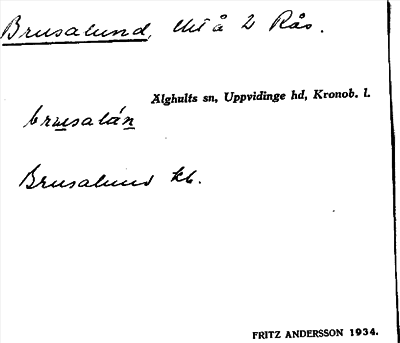 Brusalund, Utå 2 Rås.
Älghults sn, Uppvidinge hd, Kronob. l.
brusalán
Brusalund kb.
FRITZ ANDERSSON 1934.